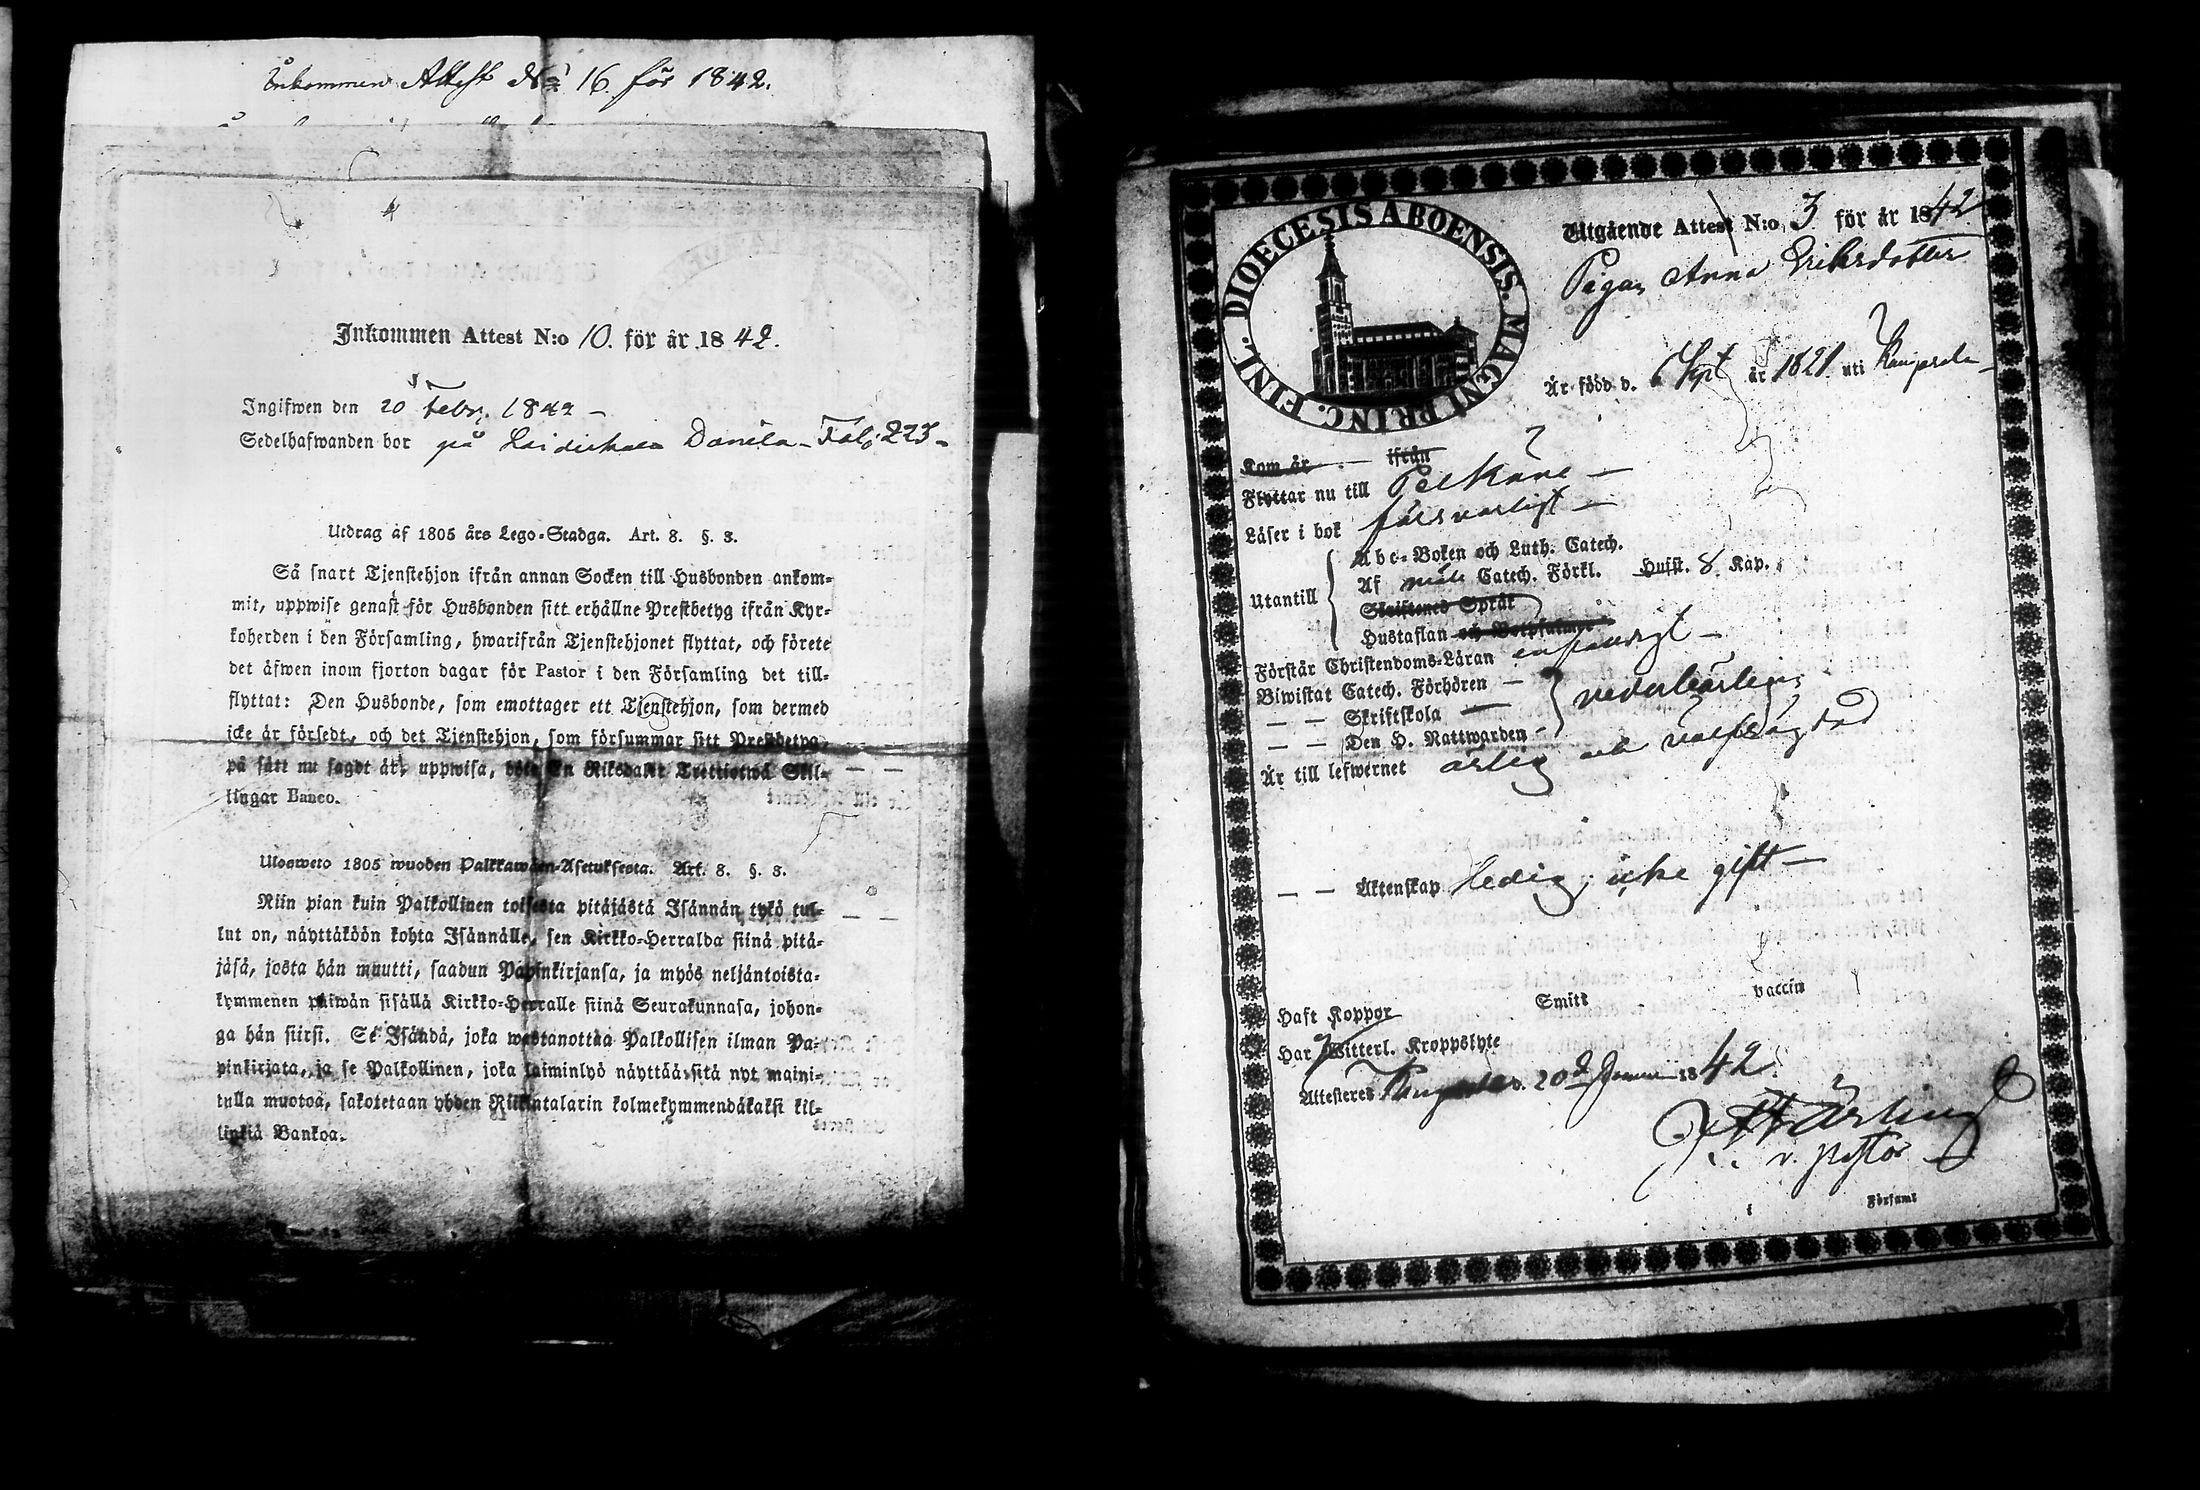 Inkommen Attest No 16 för 1842.
Inkommen Attest N:o 10. för år 1842.
Ingifwen den 20 Febr. 1842 –
Sedelhafwanden bor på Danila – Fol. 223 –
Utdrag af 1805 års Lego-Stadga. Art. 8. §. 3.
Så snart Tjenstehjon ifrån annan Socken till Husbonden ankom-
mit, uppwise genast för Husbonden sitt erhållne Prestbetyg ifrån Kyr-
koherden i den Församling, hwarifrån Tjenstehjonet flyttat, och förete
det äfwen inom fjorton dagar för Pastor i den Församling det till-
flyttat: Den Husbonde, som emottager ett Tjenstehjon, som dermed
icke är försedt, och det Tjenstehjon, som försummar sitt Prestbetyg,
på sätt nu sagdt är, uppwisa, böte En Riksdaler Trettiotwå Skil-
lingar Banco.
Ulosweto 1805 wuoden Palkkawäen-Asetuksesta. Art. 8. §. 3.
Niin pian kuin Palkollinen toisesta pitäjästä Isännän tykö tul-
lut on, näyttäköön kohta Isännälle, sen Kirkko-Herralda siinä pitä-
jäsä, josta hän muutti, saadun Papinkirjansa, ja myös neljäntoista-
kymmenen päiwän sisällä Kirkko-Herralle siinä Seurakunnasa, johon-
ga hän siirsi. Se Isändä, joka wastanottaa Palkollisen ilman Pa-
pinkirjata, ja se Palkollinen, joka laiminlyö näyttää sitä nyt maini-
tulla muotoa, sakotetaan yhden Riikintalarin kolmekymmendäkaksi kil-
linkiä Bankoa.
DIOECESIS ABOENSIS. MAGNI PRINC. FINL.
Utgående Attest N:o 3 för år 1842
Pigan Anna Eriksdotter
Är född d. Sept år 1821 uti
Kom år ifrån
Flyttar nu till Pelkäne –
Läser i bok försvarligt –
Utantill
Abc-Boken och Luth. Catech.
Af Catech. Förkl. Hufst. 8 Kap.
Skriftenes Språk
Hustaflan och Botpsalmer
Förstår Christendoms-Läran enfaldigt –
Biwistat Catech. Förhören –
– – Skriftskola – vederbörligen
– – Den H. Nattwarden –
Är till lefwernet ärlig och välfrägdad
– – Äktenskap ledig, icke gift –
Haft Koppor Smitt vaccin
Har Witterl. Kroppslyte
Attesteras d. 20 1842
v. pastor
Församl